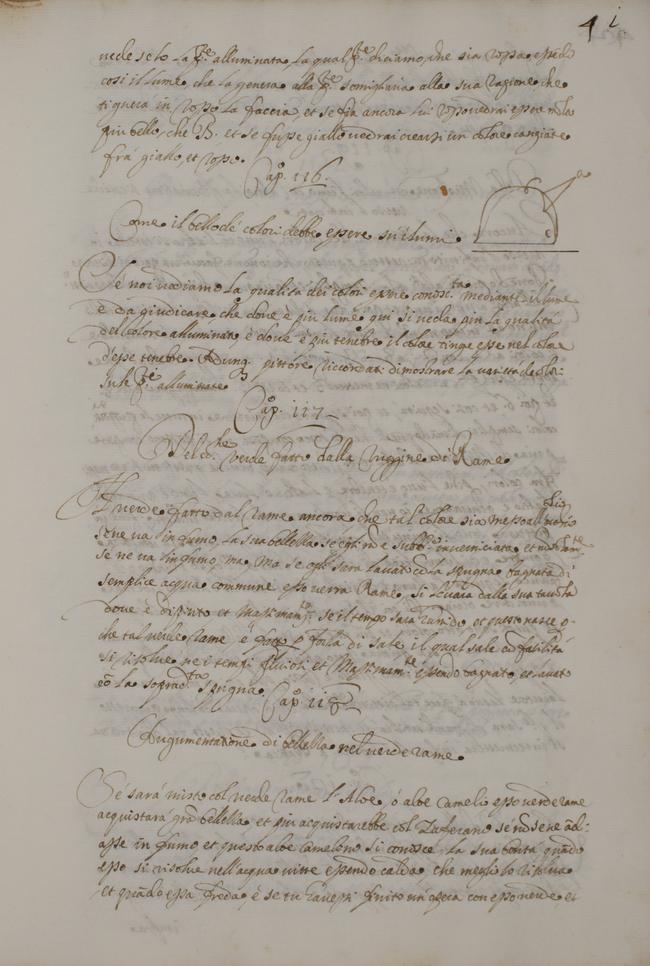 41
vede solo la p.te alluminata, la qual p.te diciamo, che sia rossa, essendo
così il lume, che la genera alla p.te somigliaria alla sua cagione, che
tigneva in rosso la faccia, et se fia ancora lui rosso vedrai essere molto
più bello, che B. et se fusse giallo vedrai crearsi un colore cangiate
frà giallo, et rosso.
Cap.o 116.
Come il bello de colori debbe essere su i lumi.
a
c
Se noi vediamo la qualità dei colori essere conosc.ta mediante il lume
è da giudicare, che dove è più lume, qui si veda più la qualità
del colore alluminato, è dove è più tenebre il colore tinge esse nel colore
d'esse tenebre. Adunq. pittore, ricordati dimostrare la varietà de colori
in le p.ti alluminate.
Cap.o 117
Del co. verde fatto dalla ruggine di Rame.
Il verde fatto dal rame, ancora che tal colore sia messo all'olio
se ne va in fumo, la sua bellezza, se egli non è subb.o inverniciato, et non solam.te
se ne va in fumo, ma, Ma se egli sera lavato con la spugna bagnata di
semplice acqua commune esso verra Rame, si levara dalla sua tavola
dove è dipinto et Massimam.te se il tempo sara rumido, et questo nasce p.
che tal verde rame è fatto p forza di sale, il qual sale con facilità
si risolve ne i tempi piuiosi, et Massimam.te essendo bagnato, et lavato
co la soprad.ta spugna.
Cap.o 118
Augumentatione di bellezza nel verderame.
Sé sarà misto col verde rame l'Aloe, ò aloe camelio esso verde rame
acquistará grã bellezza et più acquistarebbe col Zafferano se nõ se ne ãd-
asse in fumo, et questo aloe camelono si conosce, la sua bontà quãdo
esso si risolve nell'acqua vitte essendo calda, che meglio lo risolve
et quãdo essa freda, é se tu havessi finito un'opera con esso verde, et